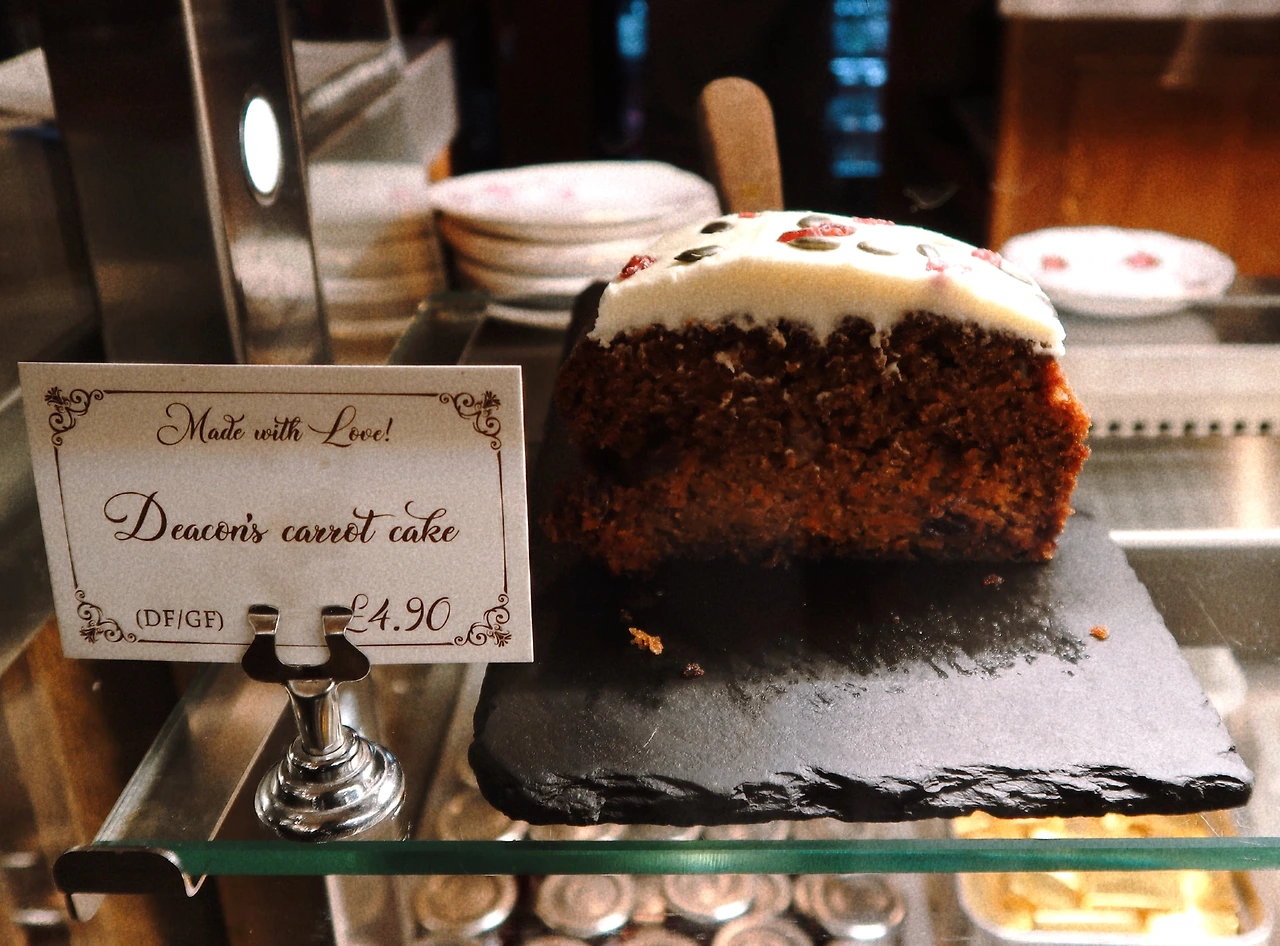 Made with Love!
Deacon's carrot cake
(DF/GF) £4.90